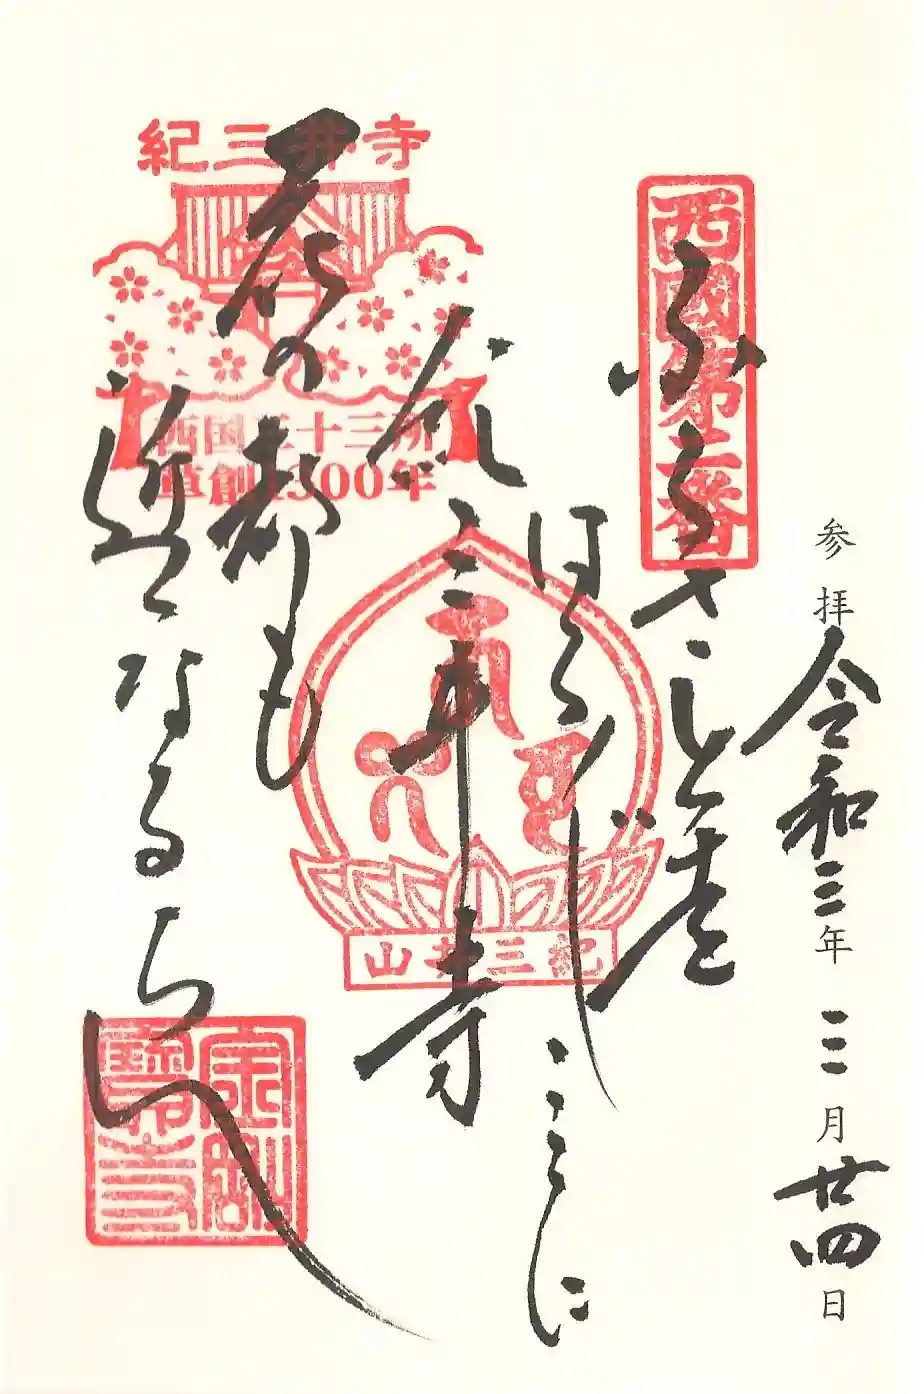 参拝令和三年三月廿四日
西國第二番
ふるさとを
はる〴〵こゝに
紀三井寺
花の都も
近くなるらん
紀三井寺
西国三十三所
草創1300年
紀三井山
金剛寶寺